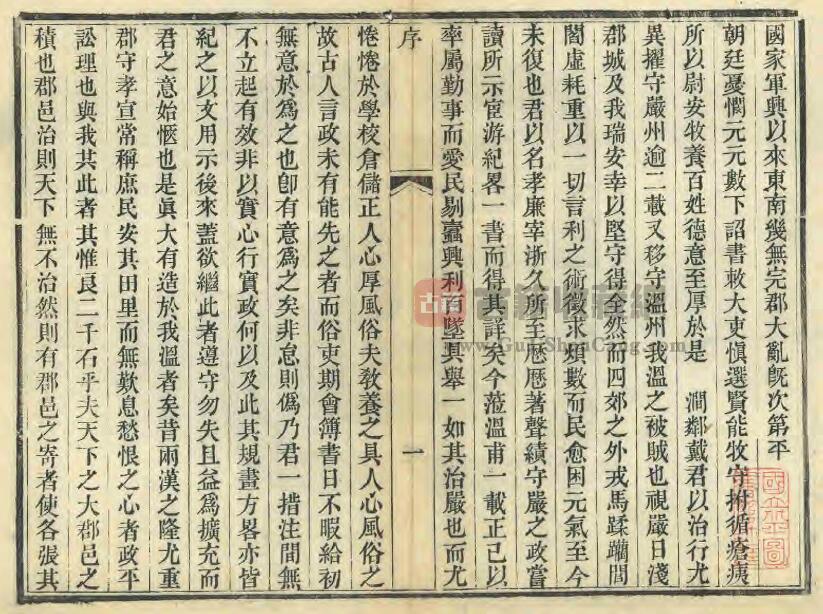 國家軍興以來東南幾無完郡大亂旣次第平
朝廷憂憫元元數下詔書敕大吏愼選賢能牧守拊循瘡痍
所以尉安牧養百姓德意至厚於是　澗鄰戴君以治行尤
異擢守嚴州逾二載又移守溫州我溫之被賊也視嚴日淺
郡城及我瑞安幸以堅守得全然而四郊之外戎馬蹂躪閭
閻虛耗重以一切言利之術徵求頻數而民愈困元氣至今
未復也君以名孝廉宰浙久所至歷歷著聲績守嚴之政嘗
讀所示宦游紀畧一書而得其詳矣今蒞溫甫一載正己以
率屬勤事而愛民剔蠹興利廢墜具舉一如其治嚴也而尤
序
一
惓惓於學校倉儲正人心厚風俗夫敎養之具人心風俗之
故古人言政未有能先之者而俗吏期會簿書日不暇給初
無意於爲之也卽有意爲之矣非怠則僞乃君一措注間無
不立起有效非以實心行實政何以及此其規畫方畧亦皆
紀之以文用示後來蓋欲繼此者遵守勿失且益爲擴充而
君之意始愜也是眞大有造於我溫者矣昔兩漢之隆尤重
郡守孝宣常稱庶民安其田里而無歎息愁恨之心者政平
訟理也與我其此者其惟良二千石乎夫天下之大郡邑之
積也郡邑治則天下無不治然則有郡邑之寄者使各張其
古籍收藏網
www.GuJiShouCang.com